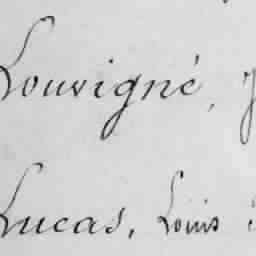 Louvigné, J
Lucas, Louis